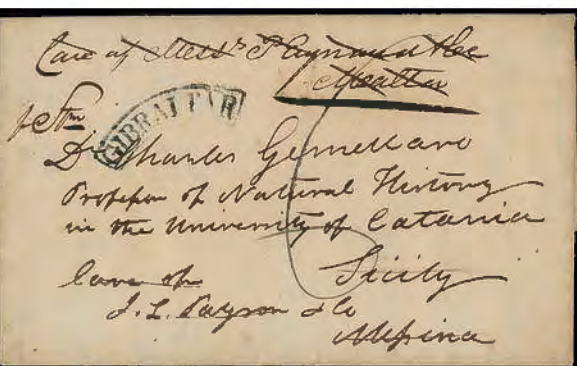 Care of Messrs Paynand & Co
Malta
GIBRALTAR
Dr Charles Gemellaro
Professor of Natural History
in the University of Catania
Sicily
Care of
J. L. Payson & Co
Messina